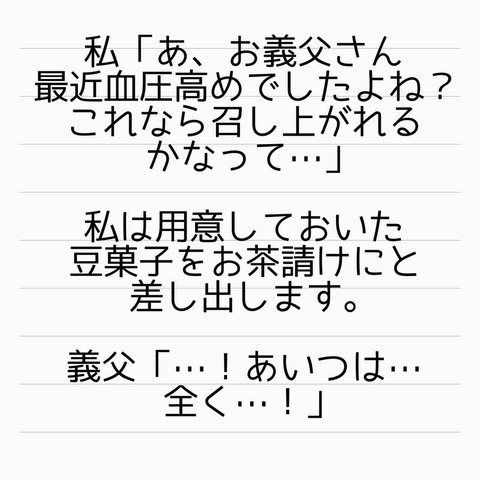 私「あ、お義父さん
最近血圧高めでしたよね？
これなら召し上がれる
かなって…」
私は用意しておいた
豆菓子をお茶請けにと
差し出します。
義父「…！あいつは…
全く…！」